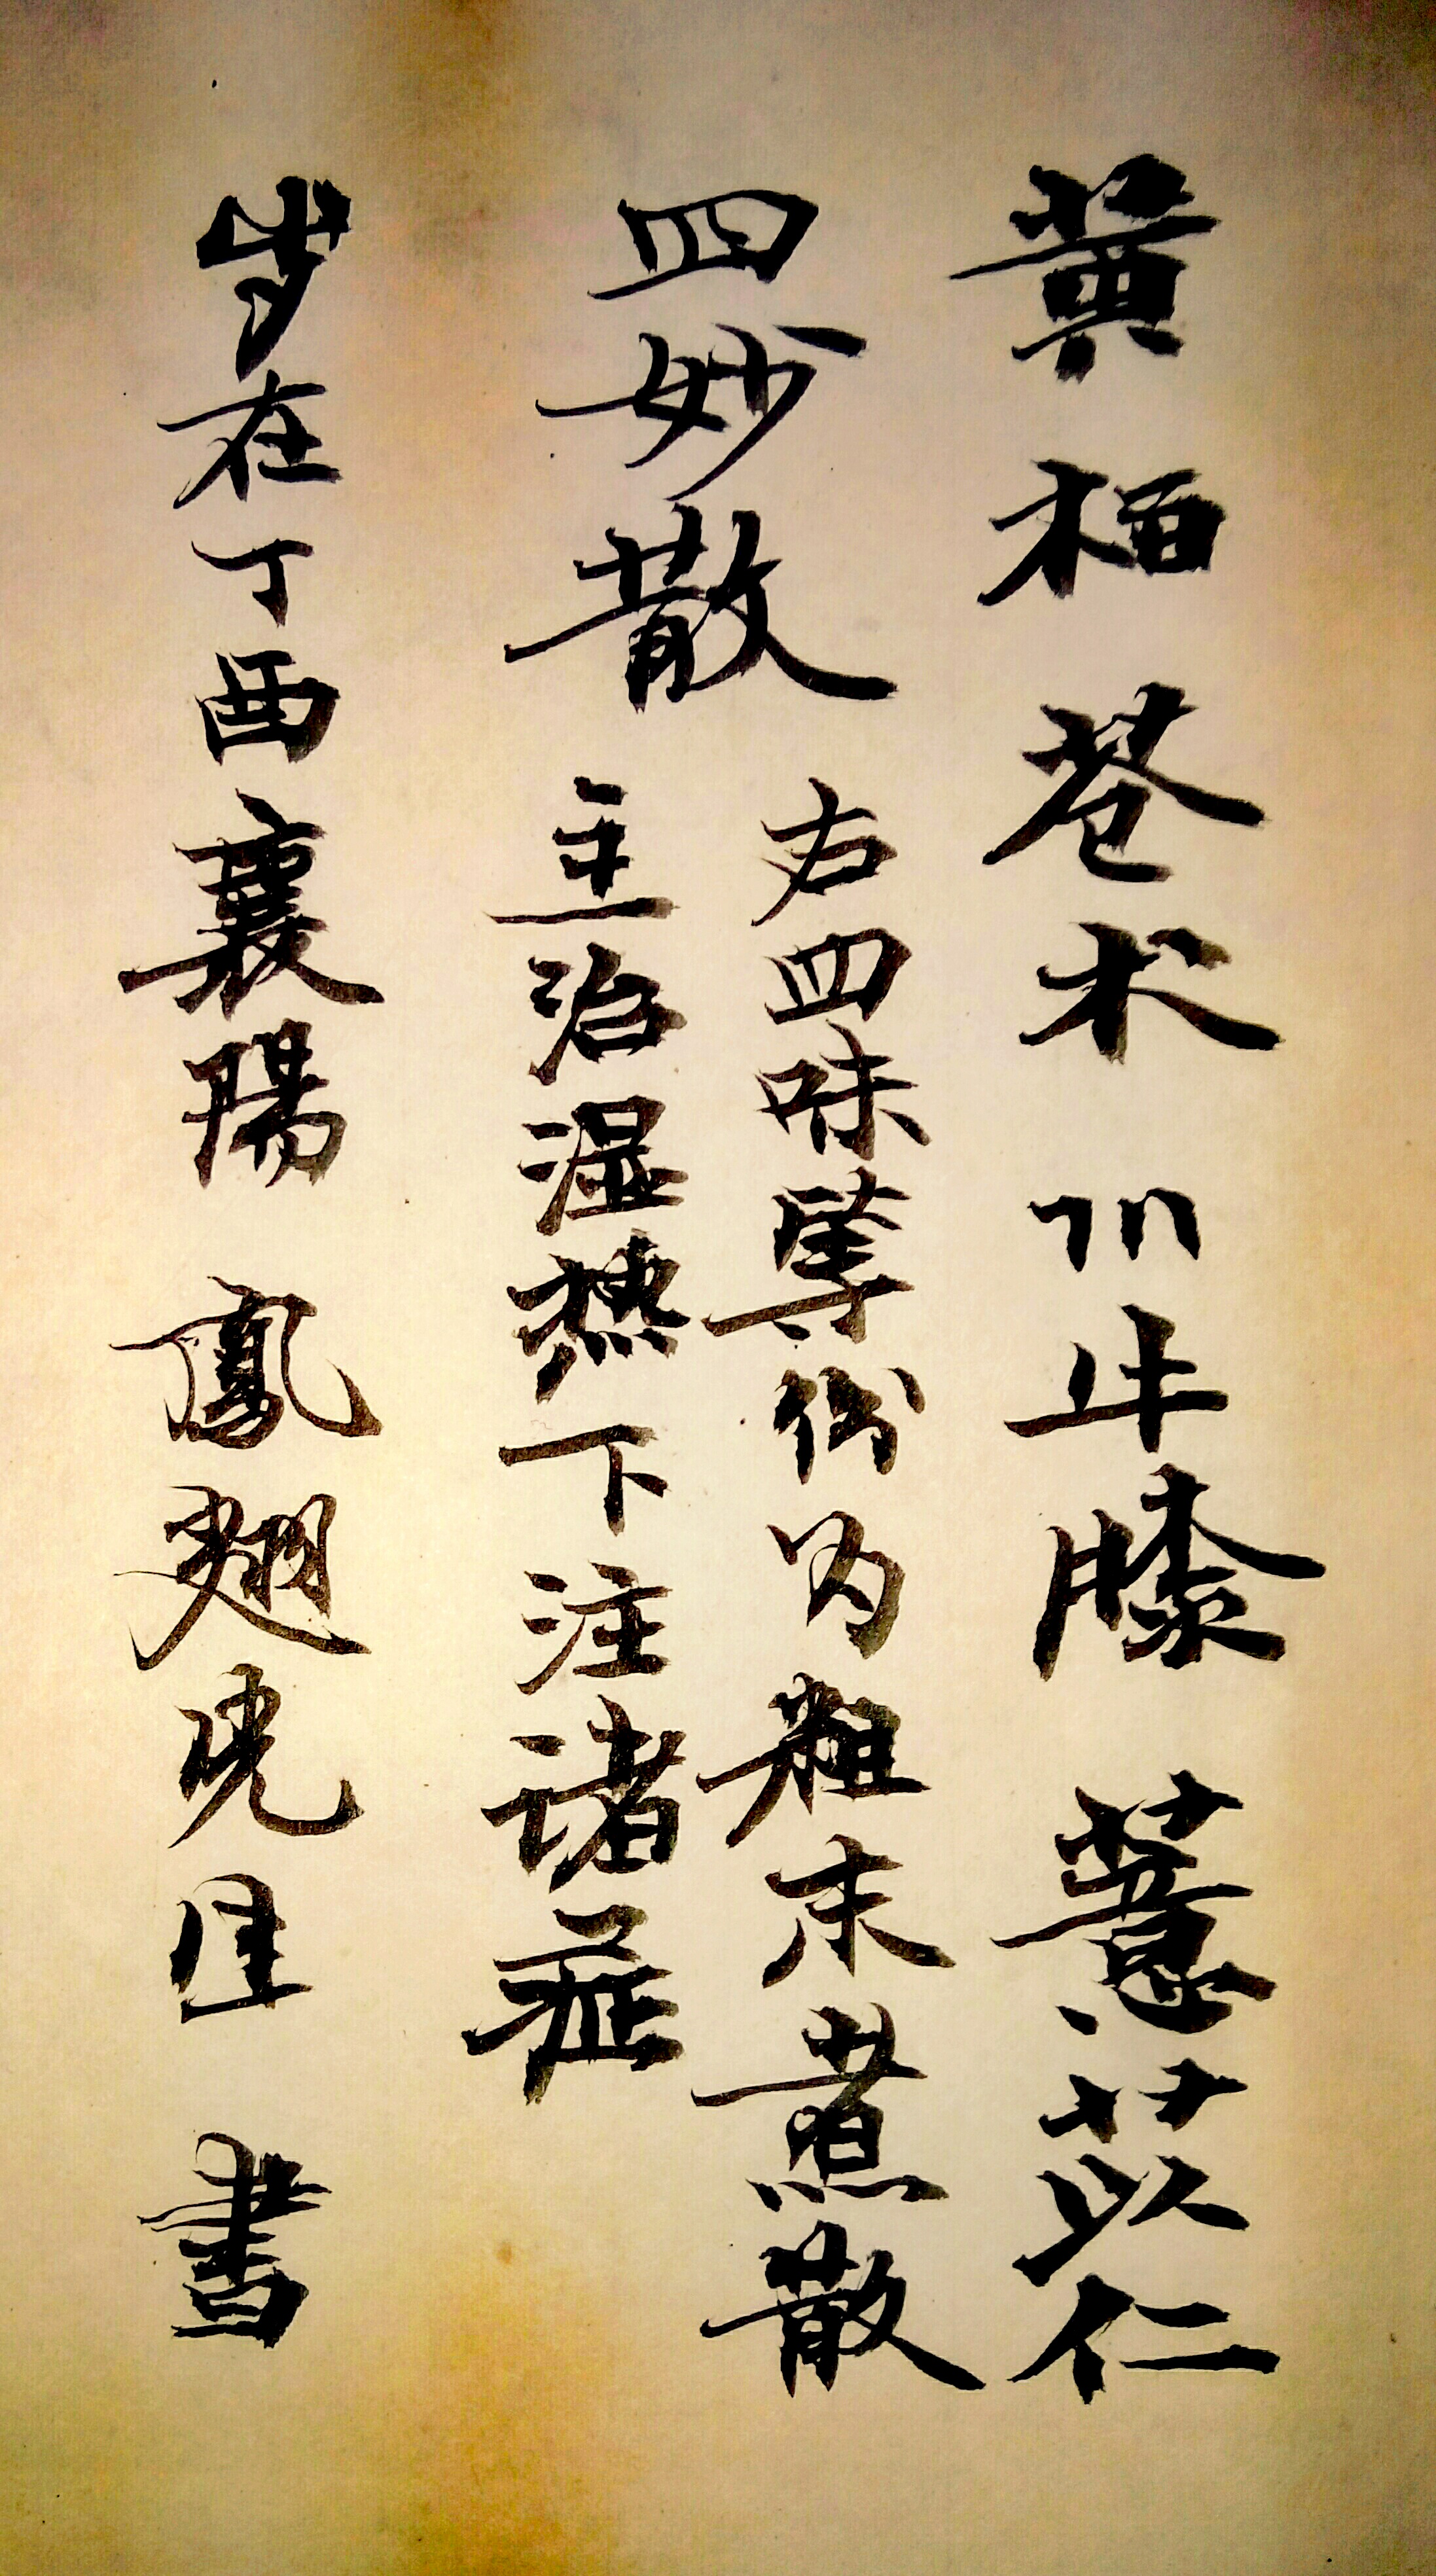 黄柏 苍术 川牛膝 薏苡仁
四妙散
右四味等份为粗末煮散
主治湿热下注诸症
岁在丁酉襄陽 鳳翅 書